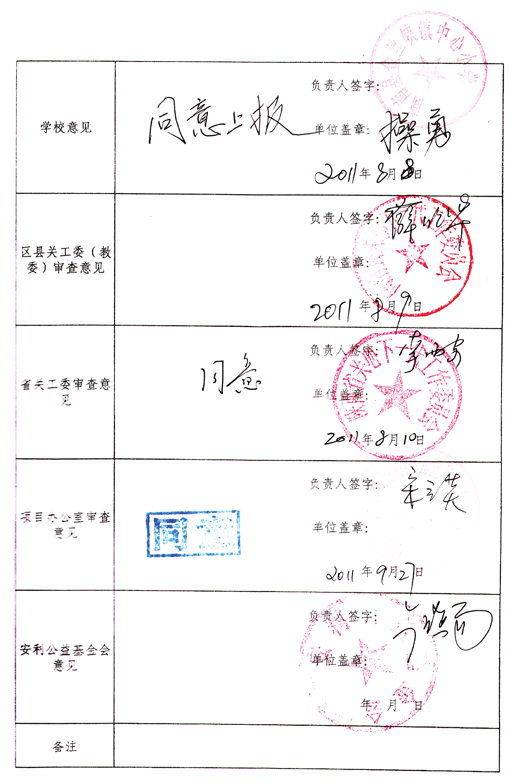 中心小学
负责人签字：
学校意见
同意上报
单位盖章：
操勇
2011年8月8日
负责人签字：
区县关工委（教委）审查意见
单位盖章：
2011年8月9日
负责人签字：
省关工委审查意见
同意
单位盖章：
关心下一代工作委员会
2011年8月10日
负责人签字：
项目办公室审查意见
同意
单位盖章：
2011年9月27日
负责人签字：
安利公益基金会意见
单位盖章：
年 月 日
备注